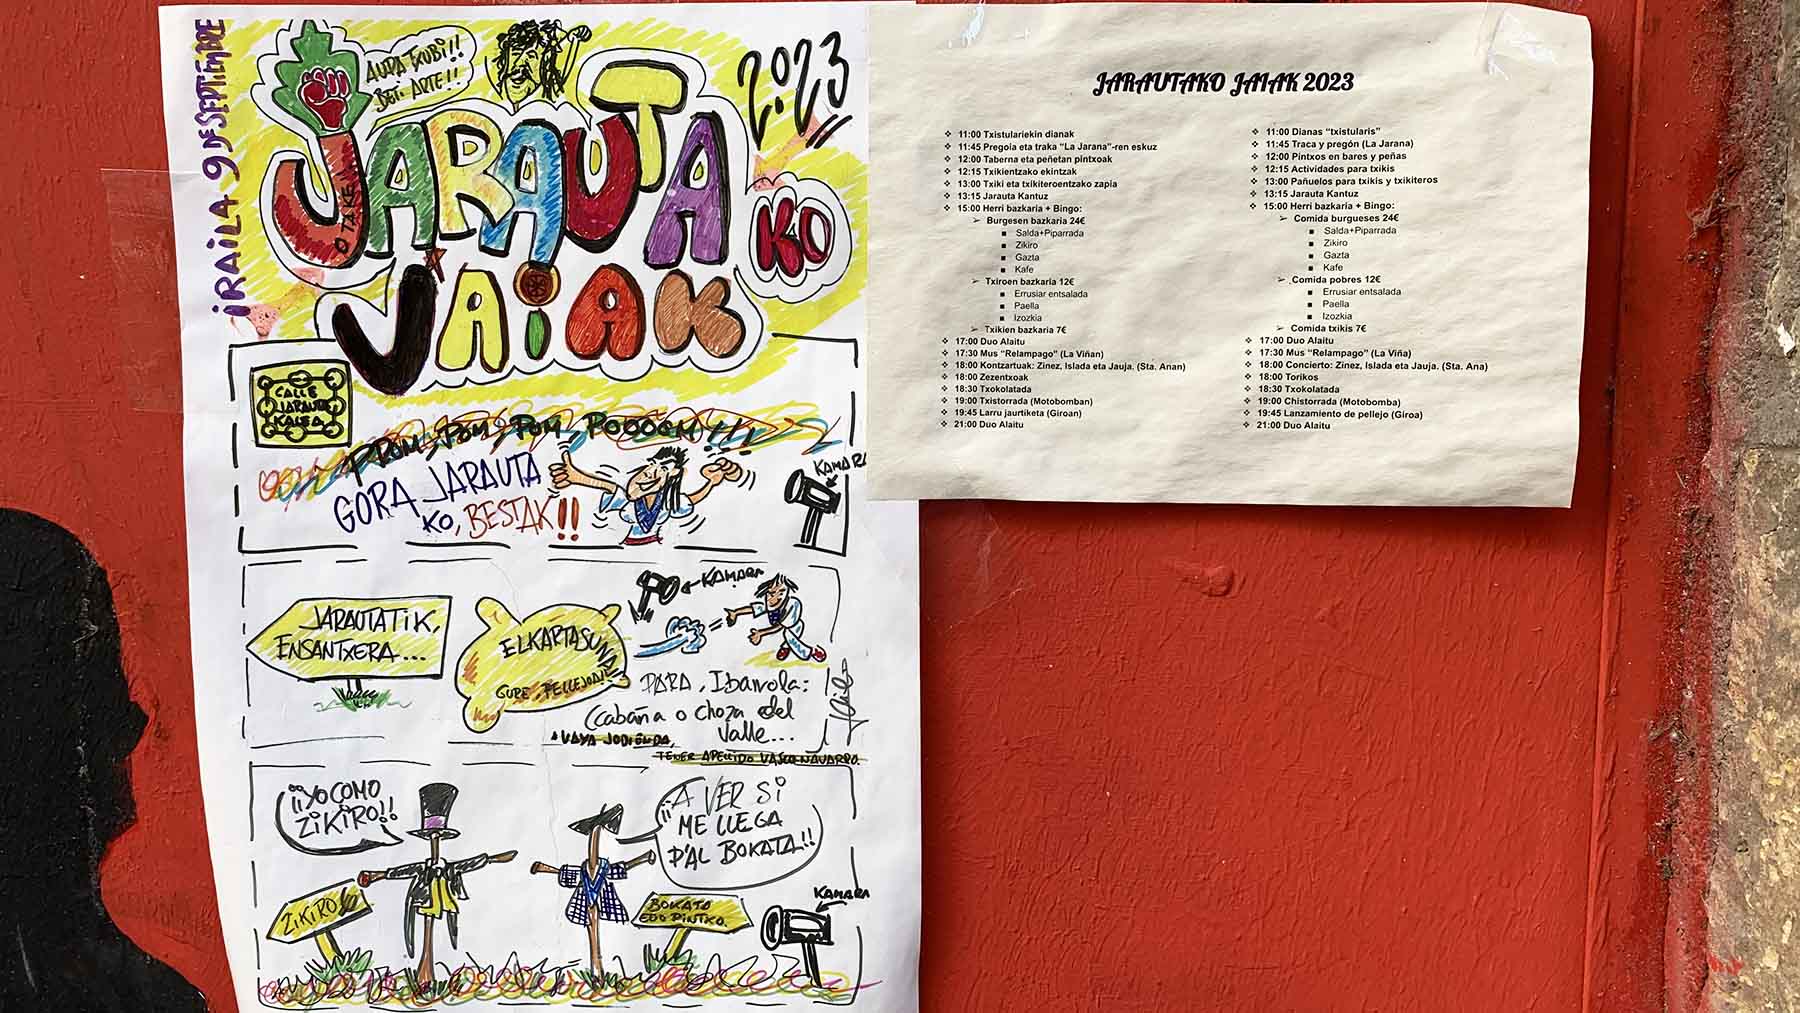 IRAILA 9 DE SEPTIEMBRE
AUPA TXUBI!!
BETI ARTE!!
2023
JARAUTA
KO
JAIAK
O TAKE
CALLE
JARAUTA
KALEA
PROM, POM, POM POOOOM!!!
GORA JARAUTA
KO, BESTAK!!
KAMARA
JARAUTATIK,
ENSANTXERA...
ELKARTASUNA
GURE, PELLEJOA!!
KAMARA
PARA, Ibarrola:
(cabaña o choza del
valle...
* VAYA JODIENDA,
TENER APELLIDO VASCO NAVARRO.
¡¡YO COMO
ZIKIRO!!
¡¡A VER SI
ME LLEGA
P'AL BOKATA!!
ZIKIRO
BOKATA
EDO PINTXO.
KAMARA
JARAUTAKO JAIAK 2023
❖ 11:00 Txistulariekin dianak
❖ 11:45 Pregoia eta traka “La Jarana”-ren eskuz
❖ 12:00 Taberna eta peñetan pintxoak
❖ 12:15 Txikientzako ekintzak
❖ 13:00 Txiki eta txikiteroentzako zapia
❖ 13:15 Jarauta Kantuz
❖ 15:00 Herri bazkaria + Bingo:
➢ Burgesen bazkaria 24€
■ Salda+Piparrada
■ Zikiro
■ Gazta
■ Kafe
➢ Txiroen bazkaria 12€
■ Errusiar entsalada
■ Paella
■ Izozkia
➢ Txikien bazkaria 7€
❖ 17:00 Duo Alaitu
❖ 17:30 Mus “Relampago” (La Viñan)
❖ 18:00 Kontzartuak: Zinez, Islada eta Jauja. (Sta. Anan)
❖ 18:00 Zezentxoak
❖ 18:30 Txokolatada
❖ 19:00 Txistorrada (Motobomban)
❖ 19:45 Larru jaurtiketa (Giroan)
❖ 21:00 Duo Alaitu
❖ 11:00 Dianas “txistularis”
❖ 11:45 Traca y pregón (La Jarana)
❖ 12:00 Pintxos en bares y peñas
❖ 12:15 Actividades para txikis
❖ 13:00 Pañuelos para txikis y txikiteros
❖ 13:15 Jarauta Kantuz
❖ 15:00 Herri bazkaria + Bingo:
➢ Comida burgueses 24€
■ Salda+Piparrada
■ Zikiro
■ Gazta
■ Kafe
➢ Comida pobres 12€
■ Errusiar entsalada
■ Paella
■ Izozkia
➢ Comida txikis 7€
❖ 17:00 Duo Alaitu
❖ 17:30 Mus “Relampago” (La Viña)
❖ 18:00 Concierto: Zinez, Islada eta Jauja. (Sta. Ana)
❖ 18:00 Torikos
❖ 18:30 Txokolatada
❖ 19:00 Chistorrada (Motobomba)
❖ 19:45 Lanzamiento de pellejo (Giroa)
❖ 21:00 Duo Alaitu